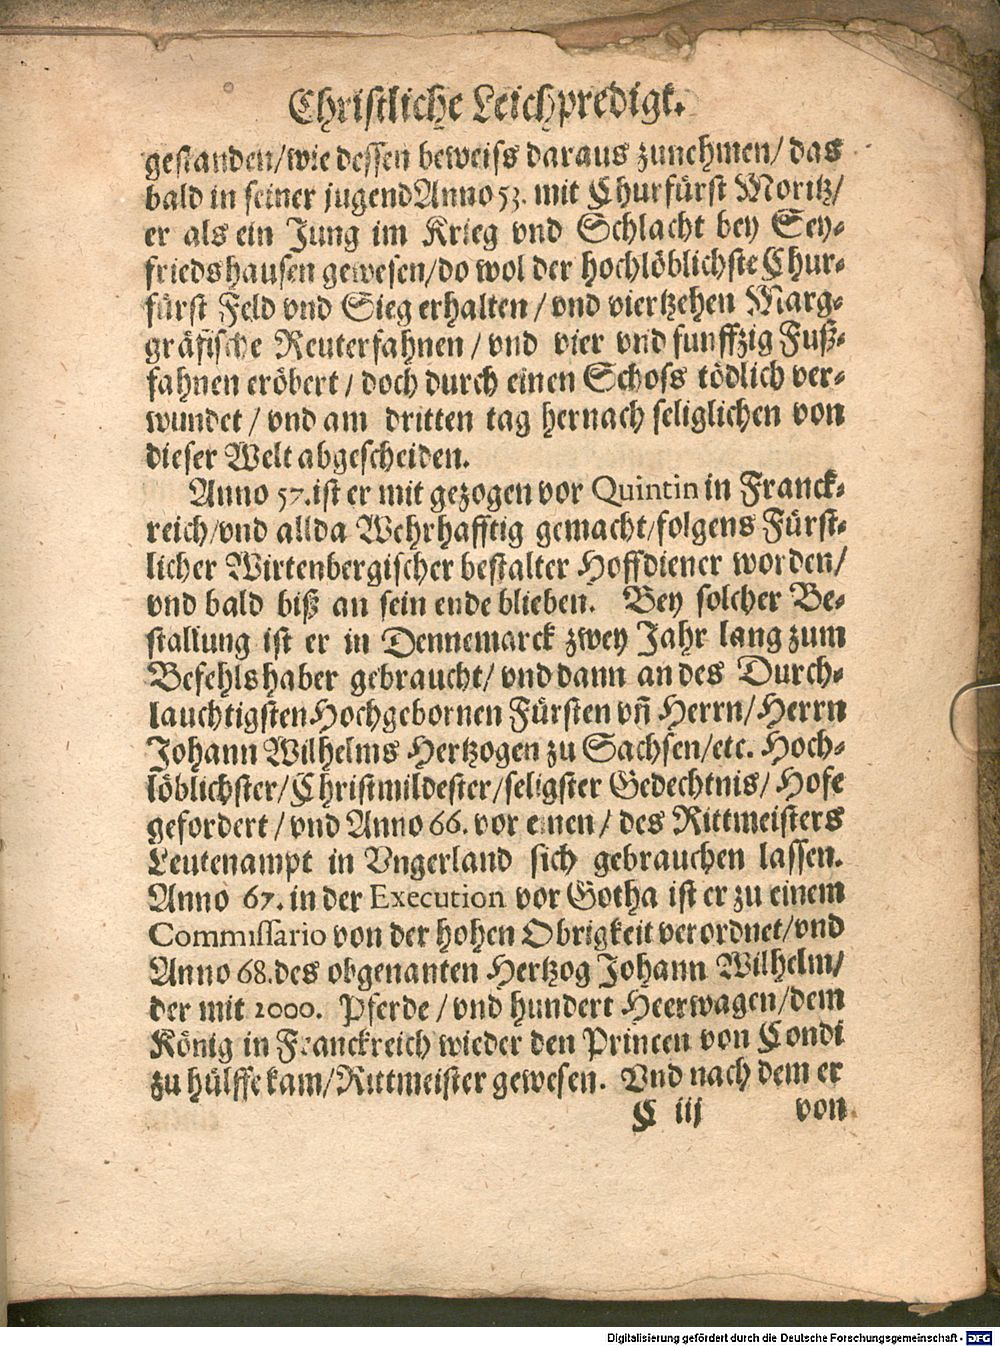 Christliche Leichpredigt.
gestanden/wie dessen beweiss daraus zunehmen/das
bald in seiner jugend Anno 53. mit Churfürst Moritz/
er als ein Jung im Krieg vnd Schlacht bey Sey-
friedshausen gewesen/do wol der hochlöblichste Chur-
fürst Feld vnd Sieg erhalten/vnd viertzehen Marg-
gräfische Reuterfahnen/vnd vier vnd funffzig Fuß-
fahnen eröbert/doch durch einen Schoss tödlich ver-
wundet/vnd am dritten tag hernach seliglichen von
dieser Welt abgescheiden.
Anno 57.ist er mit gezogen vor Quintin in Franck-
reich/vnd allda Wehrhafftig gemacht/folgens Fürst-
licher Wirtenbergischer bestalter Hoffdiener worden/
vnd bald biß an sein ende blieben. Bey solcher Be-
stallung ist er in Dennemarck zwey Jahr lang zum
Befehlshaber gebraucht/vnd dann an des Durch-
lauchtigsten Hochgebornen Fürsten vñ Herrn/Herrn
Johann Wilhelms Hertzogen zu Sachsen/etc. Hoch-
löblichster/Christmildester/seligster Gedechtnis/Hofe
gefordert/vnd Anno 66. vor einen/des Rittmeisters
Leutenampt in Vngerland sich gebrauchen lassen.
Anno 67. in der Execution vor Gotha ist er zu einem
Commissario von der hohen Obrigkeit verordnet/vnd
Anno 68.des obgenanten Hertzog Johann Wilhelm/
der mit 2000. Pferde/vnd hundert Heerwagen/dem
König in Franckreich wieder den Princen von Condi
zu hülffe kam/Rittmeister gewesen. Vnd nach dem er
C iij von
Digitalisierung gefördert durch die Deutsche Forschungsgemeinschaft - DFG